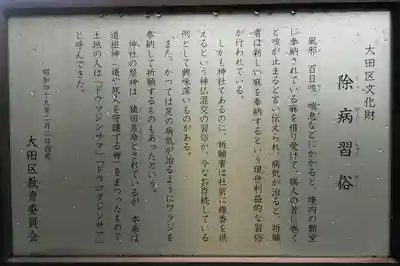 大田区文化財
除病習俗
風邪、百日咳、喘息などにかかると、境内の額堂
に奉納されている麻を借り受けて、病人の首に巻く
と咳が止まると言い伝えられ、病気が治ると、祈願
者は新しい麻を奉納するという現世利益的な習俗
が行われている。
しかも神社であるのに、祈願者は社前に線香を供
えるという神仏混交の習俗が、今なお存続している
例として興味深いものがある。
また、かつては足の病気が治るようにワラジを
奉納して祈願するものもあったという。
神社の祭神は、猿田彦命とされているが、本来は
道祖神(道や旅人を守護する神)をまつったもので、
土地の人は「ドウロクジンサマ」「ドウロクジンサマ」
と呼んできた。
昭和四十九年二月二日指定
大田区教育委員会